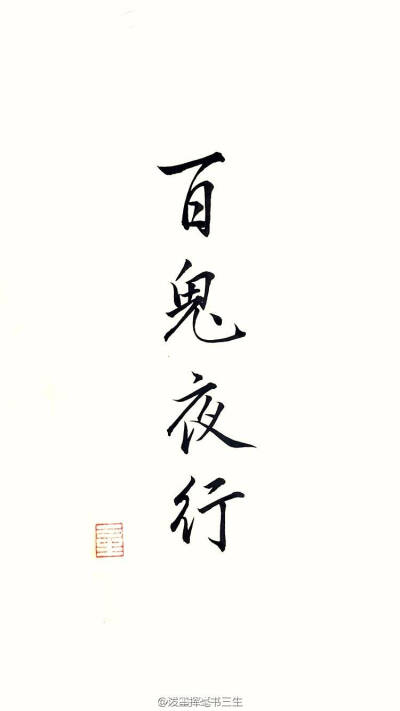 百鬼夜行
@泼墨挥毫书三生